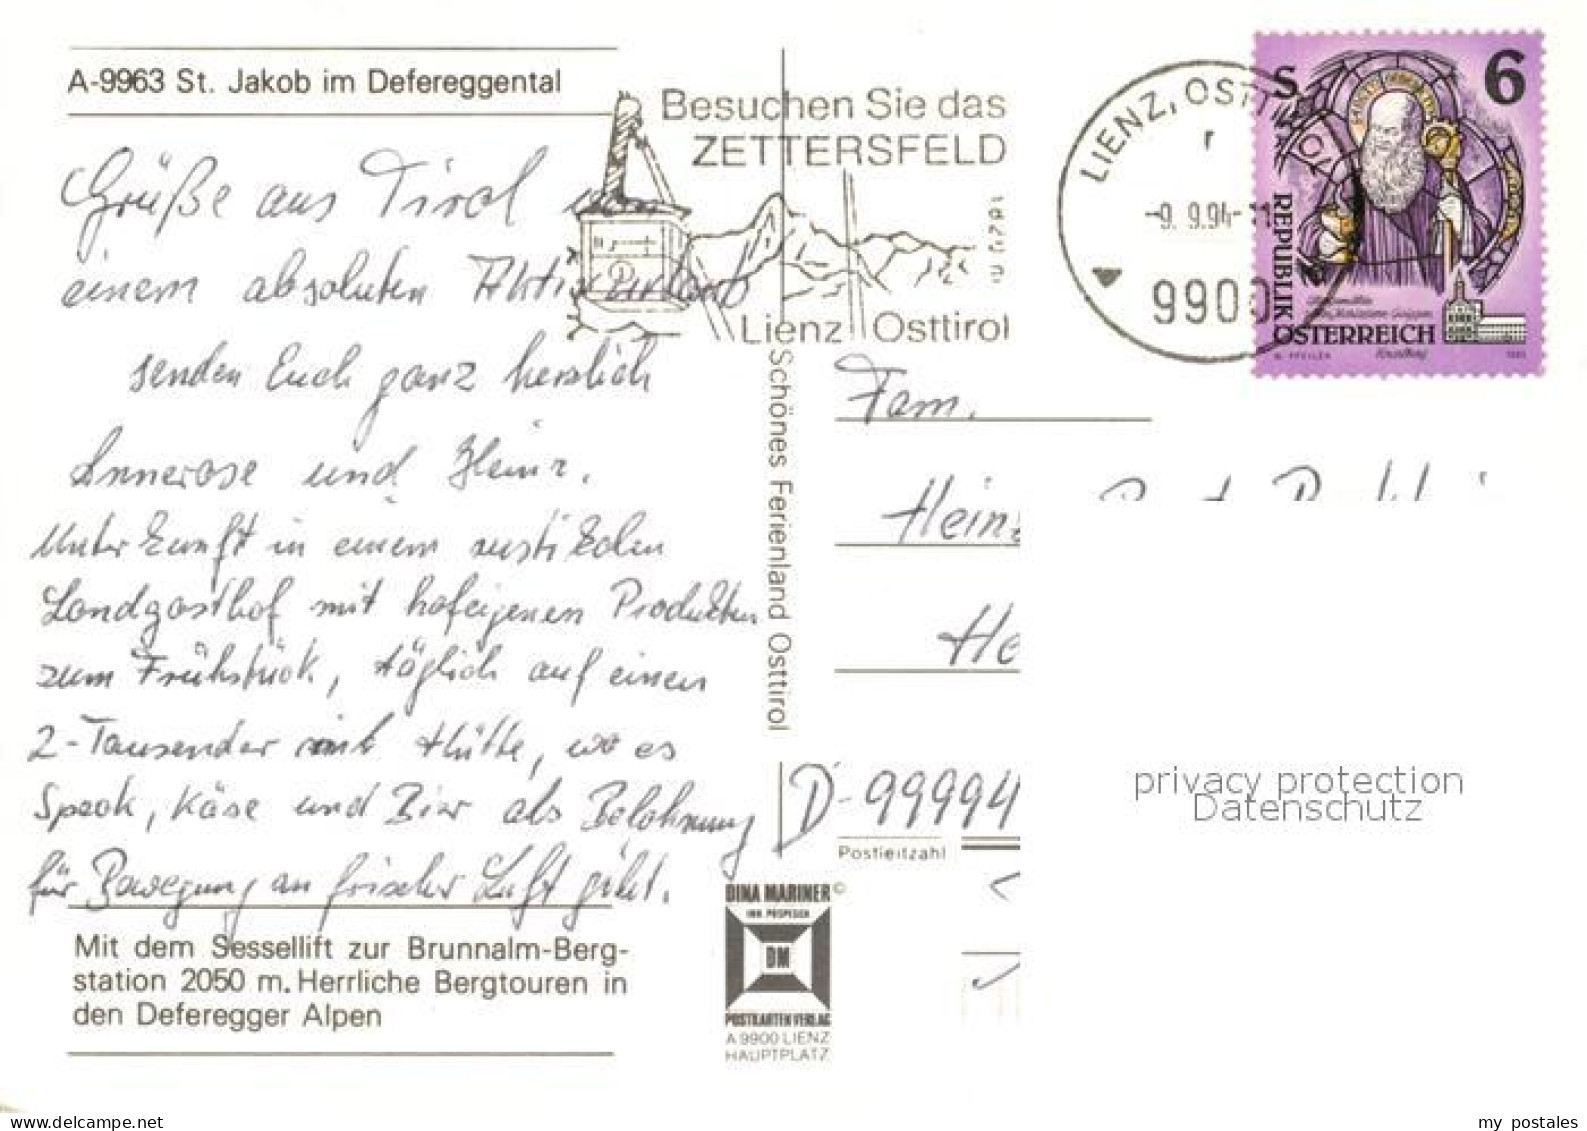 A-9963 St. Jakob im Defereggental
Grüße aus Tirol von
einem absoluten Aktivurlaub
senden Euch ganz herzlich
Annerose und Heinz.
Unterkunft in einem rustikalen
Landgasthof mit hofeigenen Produkten
zum Frühstück, täglich auf einen
2-Tausender mit Hütte, wo es
Speck, Käse und Bier als Belohnung
für Bewegung an frischer Luft gibt.
Mit dem Sessellift zur Brunnalm-Berg-
station 2050 m. Herrliche Bergtouren in
den Deferegger Alpen
Besuchen Sie das
ZETTERSFELD
Lienz Osttirol
LIENZ, OSTT
r
-9. 9.94-11
9900
S 6
REPUBLIK
ÖSTERREICH
Schönes Ferienland Osttirol
Fam.
Heinz
He
D-99994
Postleitzahl
DINA MARINER©
INH. POSPESCH
DM
POSTKARTENVERLAG
A 9900 LIENZ
HAUPTPLATZ
privacy protection
Datenschutz
www.delcampe.net
my_postales